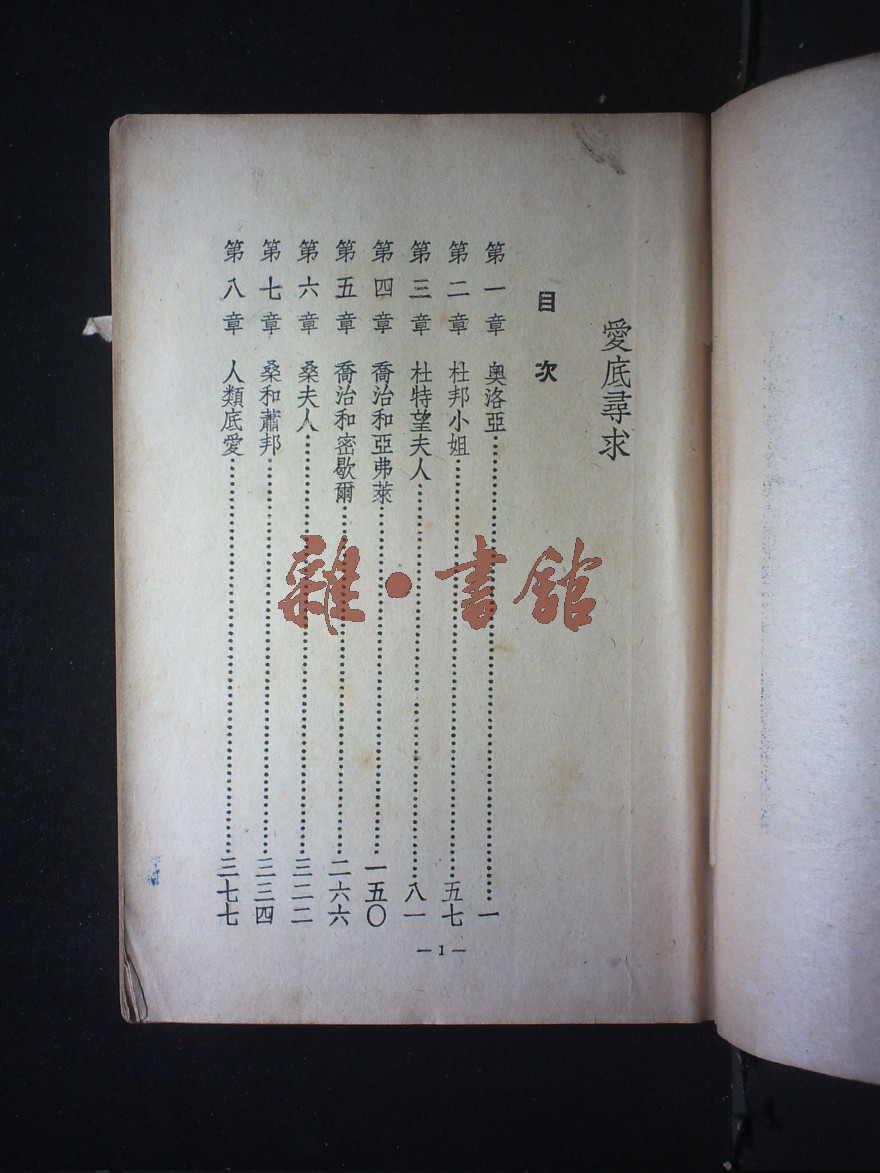 愛底尋求
目次
第一章 奧洛亞……一
第二章 杜邦小姐……五七
第三章 杜特望夫人……八一
第四章 喬治和亞弗萊……一五〇
第五章 喬治和密歇爾……二六六
第六章 桑夫人……三二二
第七章 桑和蕭邦……三三四
第八章 人類底愛……三七七
—1—
雜·書館